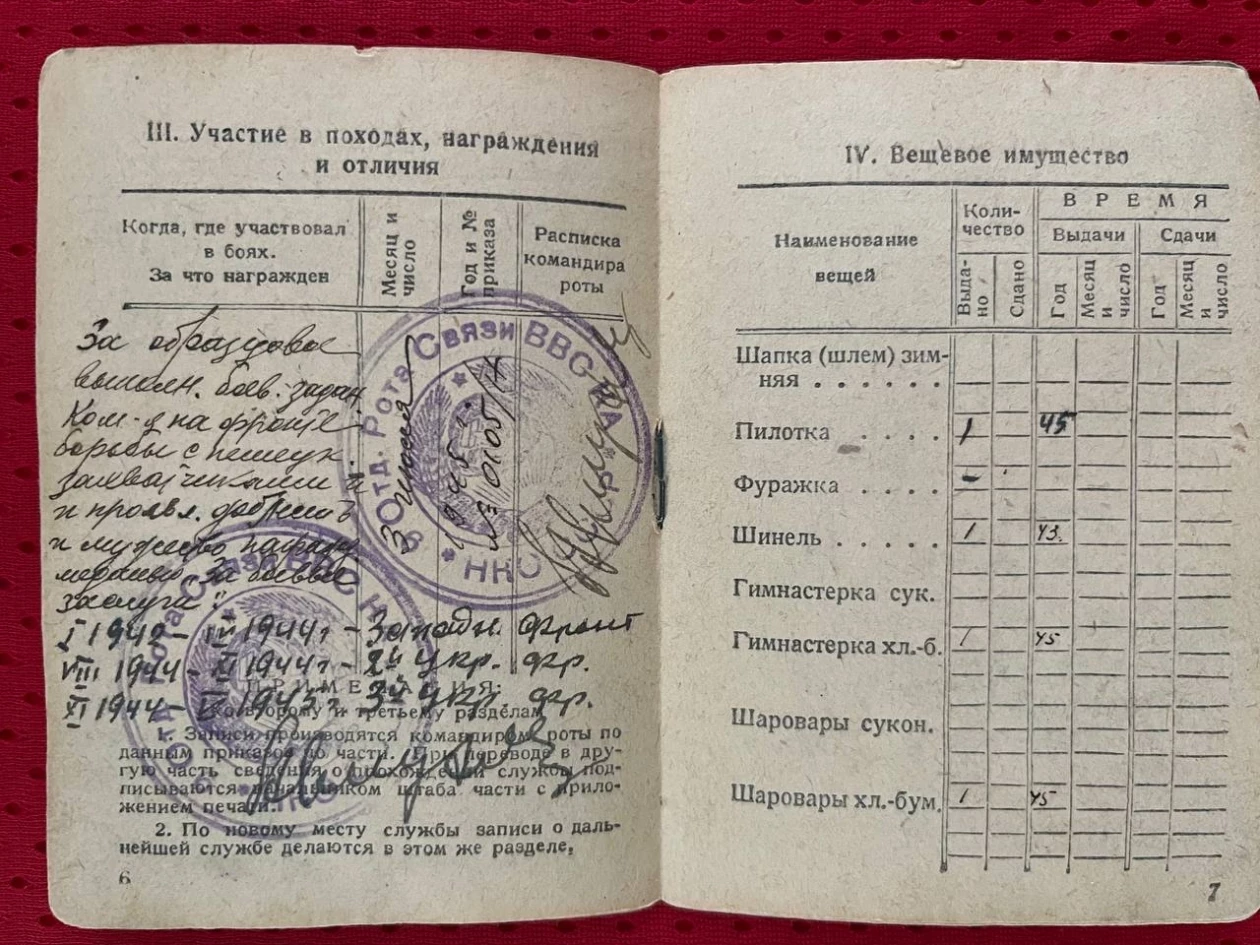 III. Участие в походах, награждения
и отличия
Когда, где участвовал
в боях.
За что награжден
Месяц и
число
Год и №
приказа
Расписка
командира
роты
За образцовое
выполн. боев. задан.
Ком-я на фронте
борьбы с немецк.
захватчиками и
и проявл. доблесть
и мужество награжд.
медалью "За боевые
заслуги".
3 июня
1945 г.
№ 0105/Н
8 Отд. Рота Связи ВВС КА
* НКО *
I 1942 - III 1944 г - Западн. фронт
VIII 1944 - XI 1944 г - 2й Укр. фр.
XI 1944 - V 1945 г. 3й Укр. фр.
ПРИМЕЧАНИЯ:
Ко второму и третьему разделам
1. Записи производятся командиром роты по
данным приказов по части. При переводе в дру-
гую часть сведения о прохождении службы под-
писываются начальником штаба части с прило-
жением печати.
2. По новому месту службы записи о даль-
нейшей службе делаются в этом же разделе,
6
IV. Вещевое имущество
Наименование
вещей
Коли-
чество
ВРЕМЯ
Выдачи
Сдачи
Выда-
но
Сдано
Год
Месяц
и
число
Год
Месяц
и
число
Шапка (шлем) зим-
няя . . . . . .
Пилотка . . . . 1 45
Фуражка . . . . -
Шинель . . . . . 1 43.
Гимнастерка сук.
Гимнастерка хл.-б. 1 45
Шаровары сукон.
Шаровары хл.-бум. 1 45
7